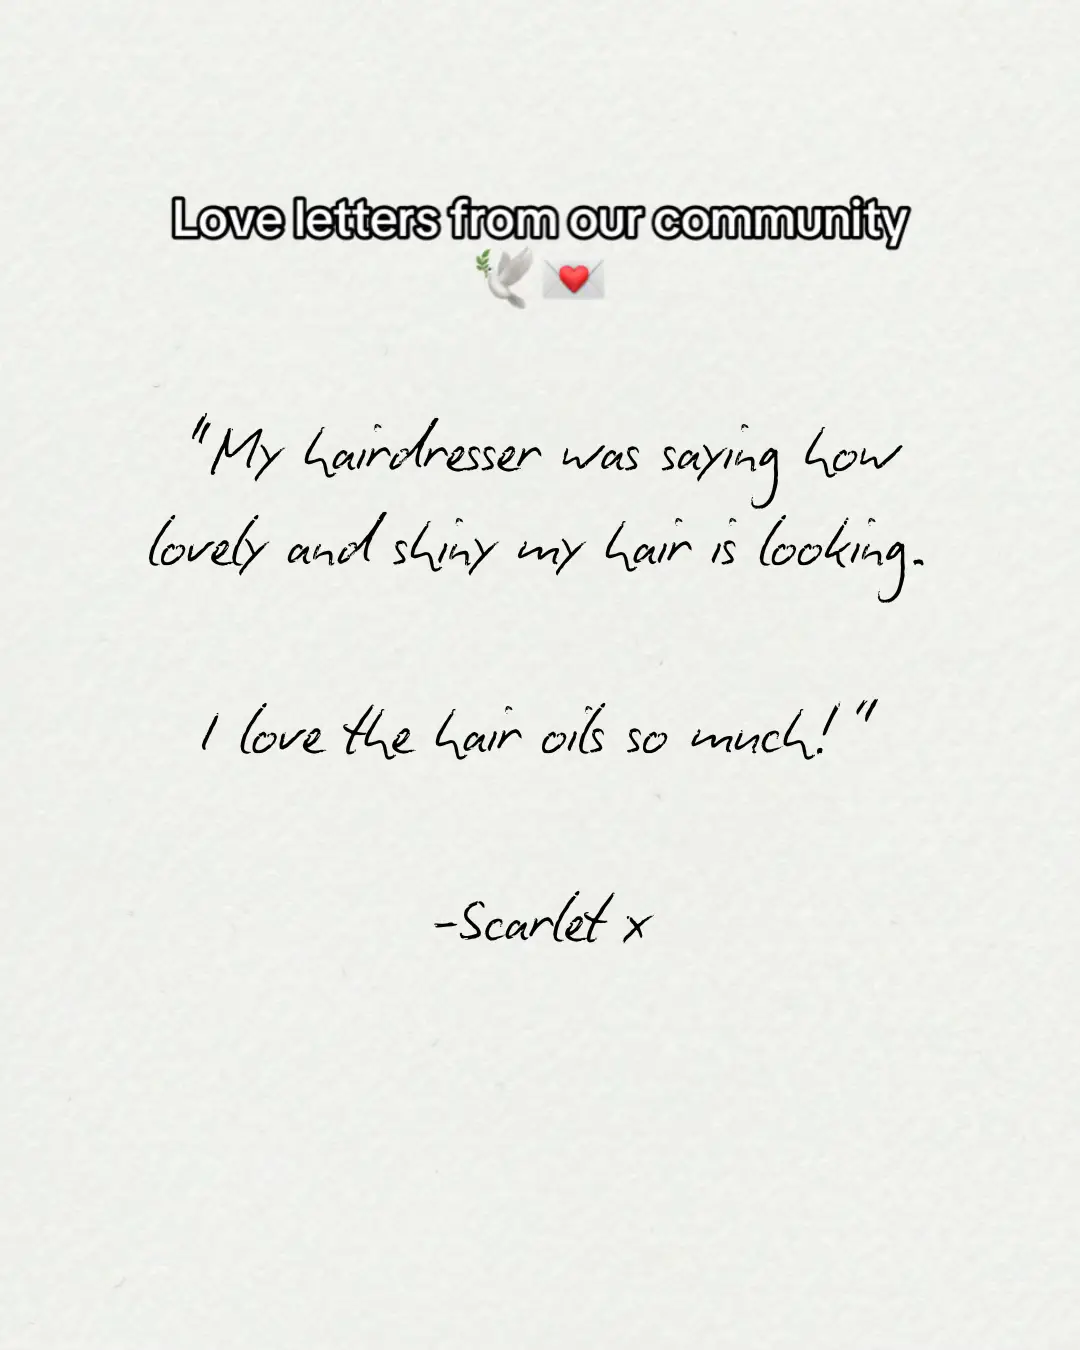 Love letters from our community
🕊️ 💌
"My hairdresser was saying how
lovely and shiny my hair is looking.
I love the hair oils so much!"
-Scarlet x